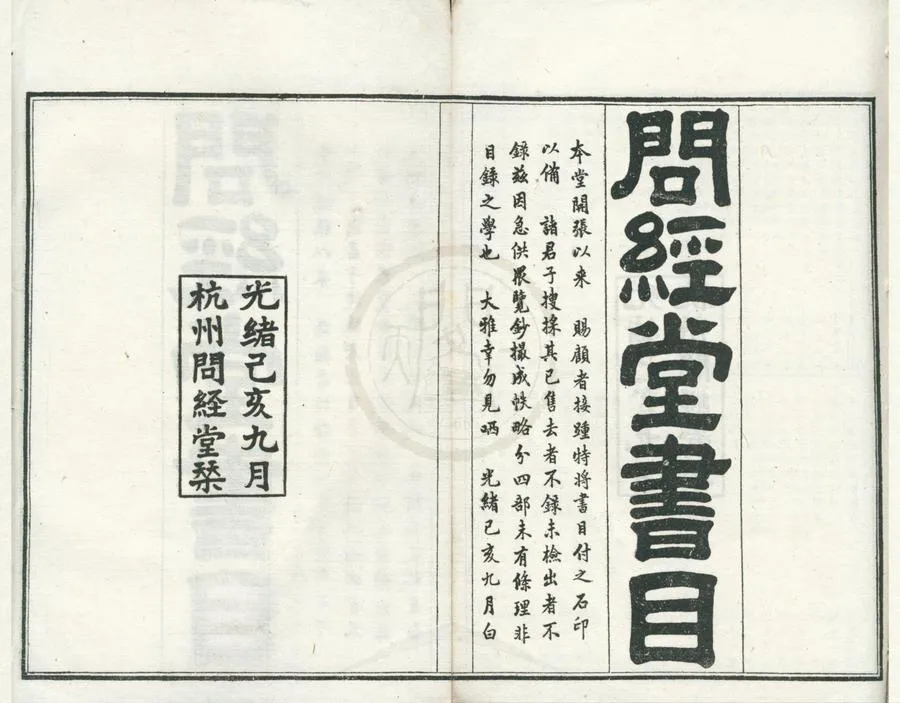 問經堂書目
本堂開張以来　賜顧者接踵特將書目付之石印
以備　諸君子搜採其已售去者不錄未檢出者不
錄茲因急供眾覽鈔撮成帙略分四部未有條理非
目錄之學也　大雅幸勿見哂　光緒己亥九月白
光緒己亥九月
杭州問経堂栞